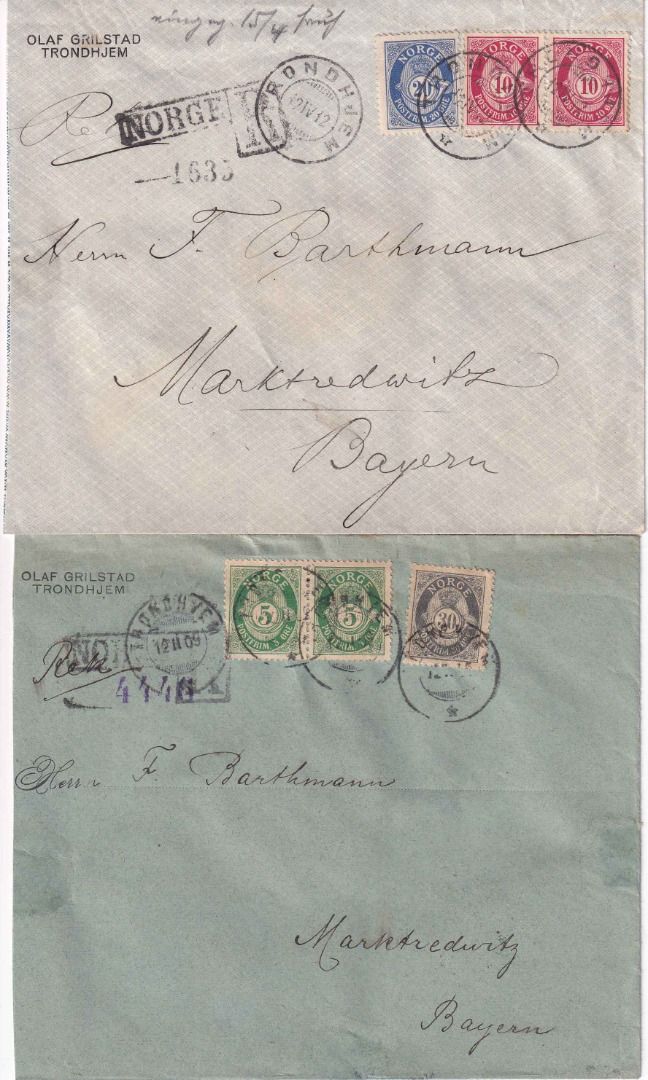 eingeg. 15/4 früh
OLAF GRILSTAD
TRONDHJEM
NORGE
20
POSTFRIM. 20 ØRE
NORGE
10
POSTFRIM. 10 ØRE
NORGE
10
POSTFRIM. 10 ØRE
NORGE R
TRONDHJEM
12 IV 12
Herrn F. Barthmann
Marktredwitz
Bayern
OLAF GRILSTAD
TRONDHJEM
NORGE
5
POSTFRIM. 5 ØRE
NORGE
5
POSTFRIM. 5 ØRE
NORGE
30
TRONDHJEM
12 II 09
Rek
4446
Herrn F. Barthmann
Marktredwitz
Bayern